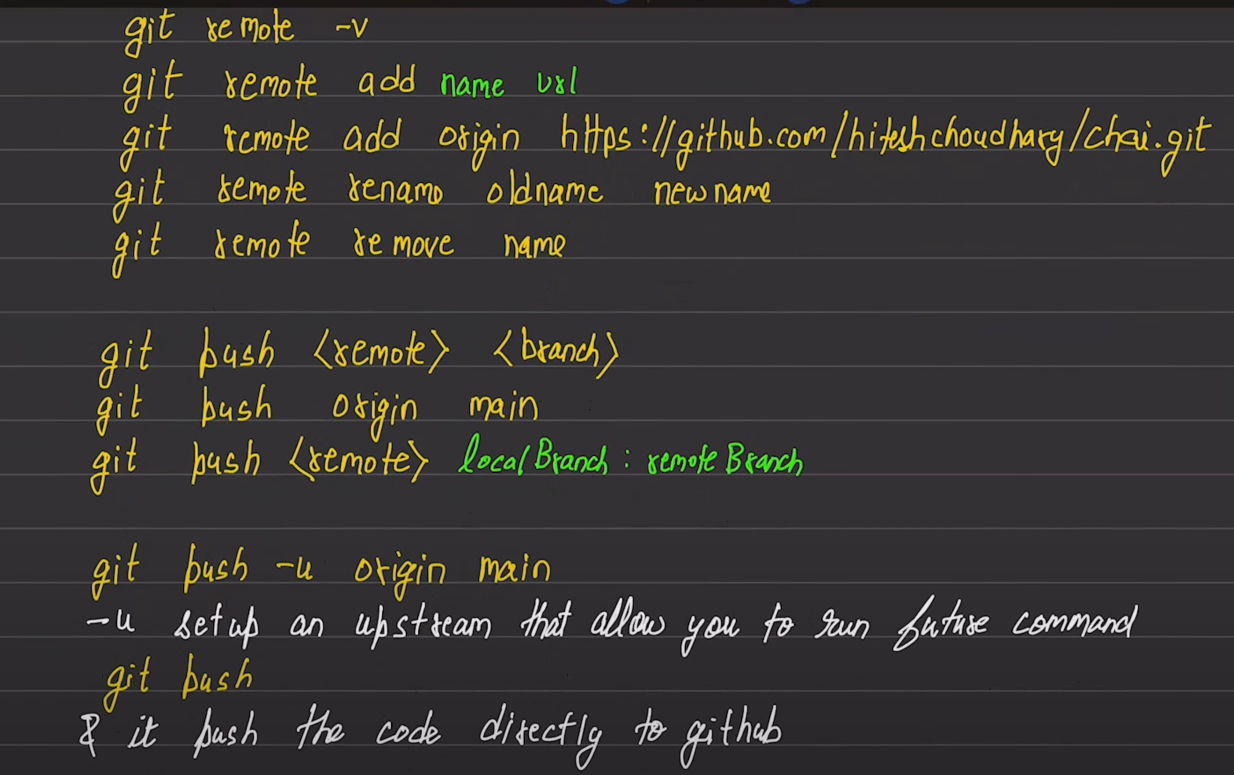 git remote -v
git remote add name url
git remote add origin https://github.com/hiteshchoudhary/chai.git
git remote rename oldname newname
git remote remove name
git push <remote> <branch>
git push origin main
git push <remote> localBranch : remoteBranch
git push -u origin main
-u setup an upstream that allow you to run future command
git push
& it push the code directly to github